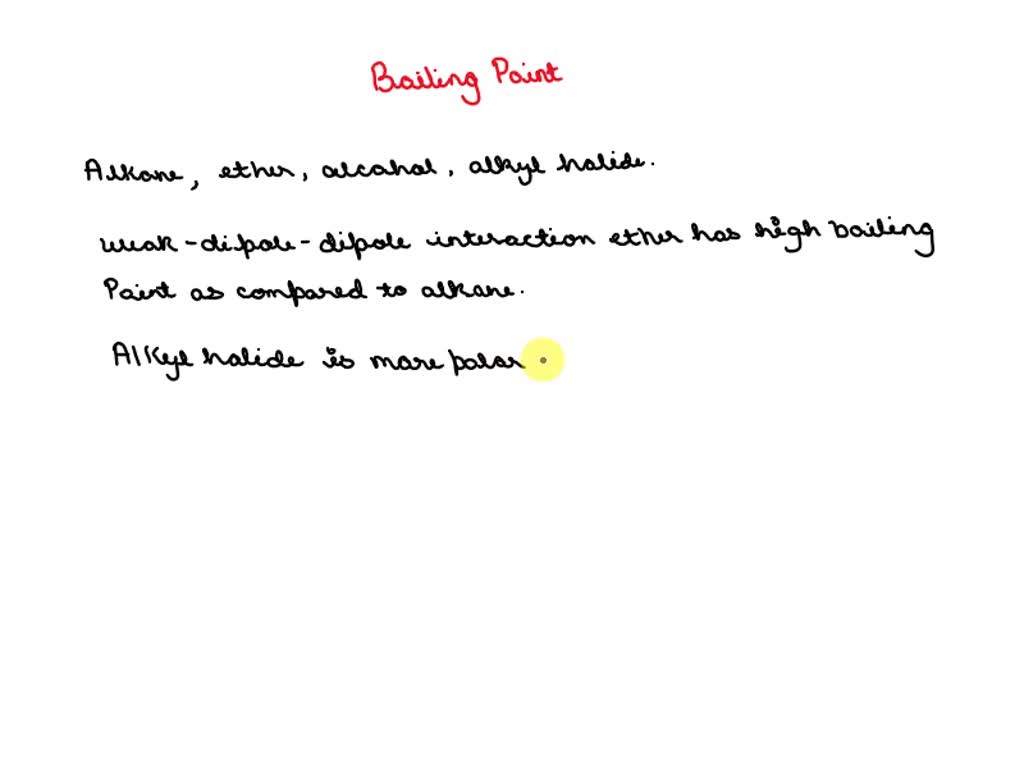 Boiling Point
Alkane, ether, alcohol, alkyl halide.
weak-dipole-dipole interaction ether has high boiling
Point as compared to alkane.
Alkyl halide is more polar